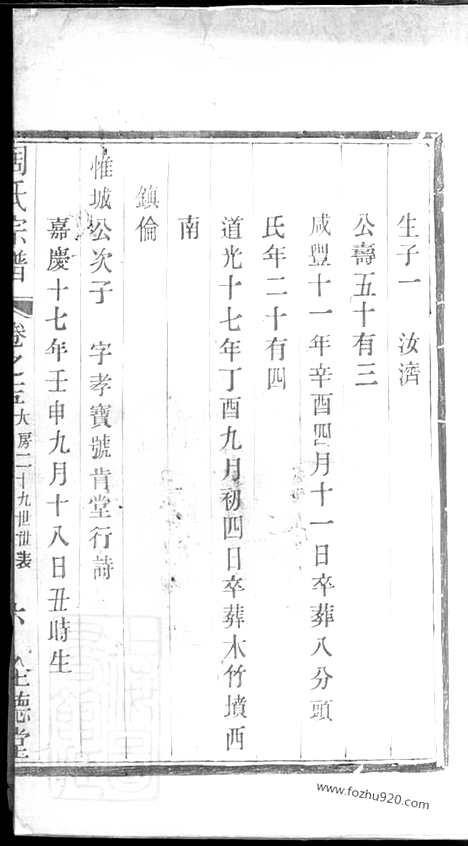 生子一 汝濟
公壽五十有三
咸豐十一年辛酉四月十一日卒葬八分頭
氏年二十有四
道光十七年丁酉九月初四日卒葬木竹墳西
南
鎮倫
惟城公次子 字孝寶號肯堂行詩
嘉慶十七年壬申九月十八日丑時生
周氏宗譜 卷之五 大房二十九世世表 六 全德堂
www.fozhu920.com